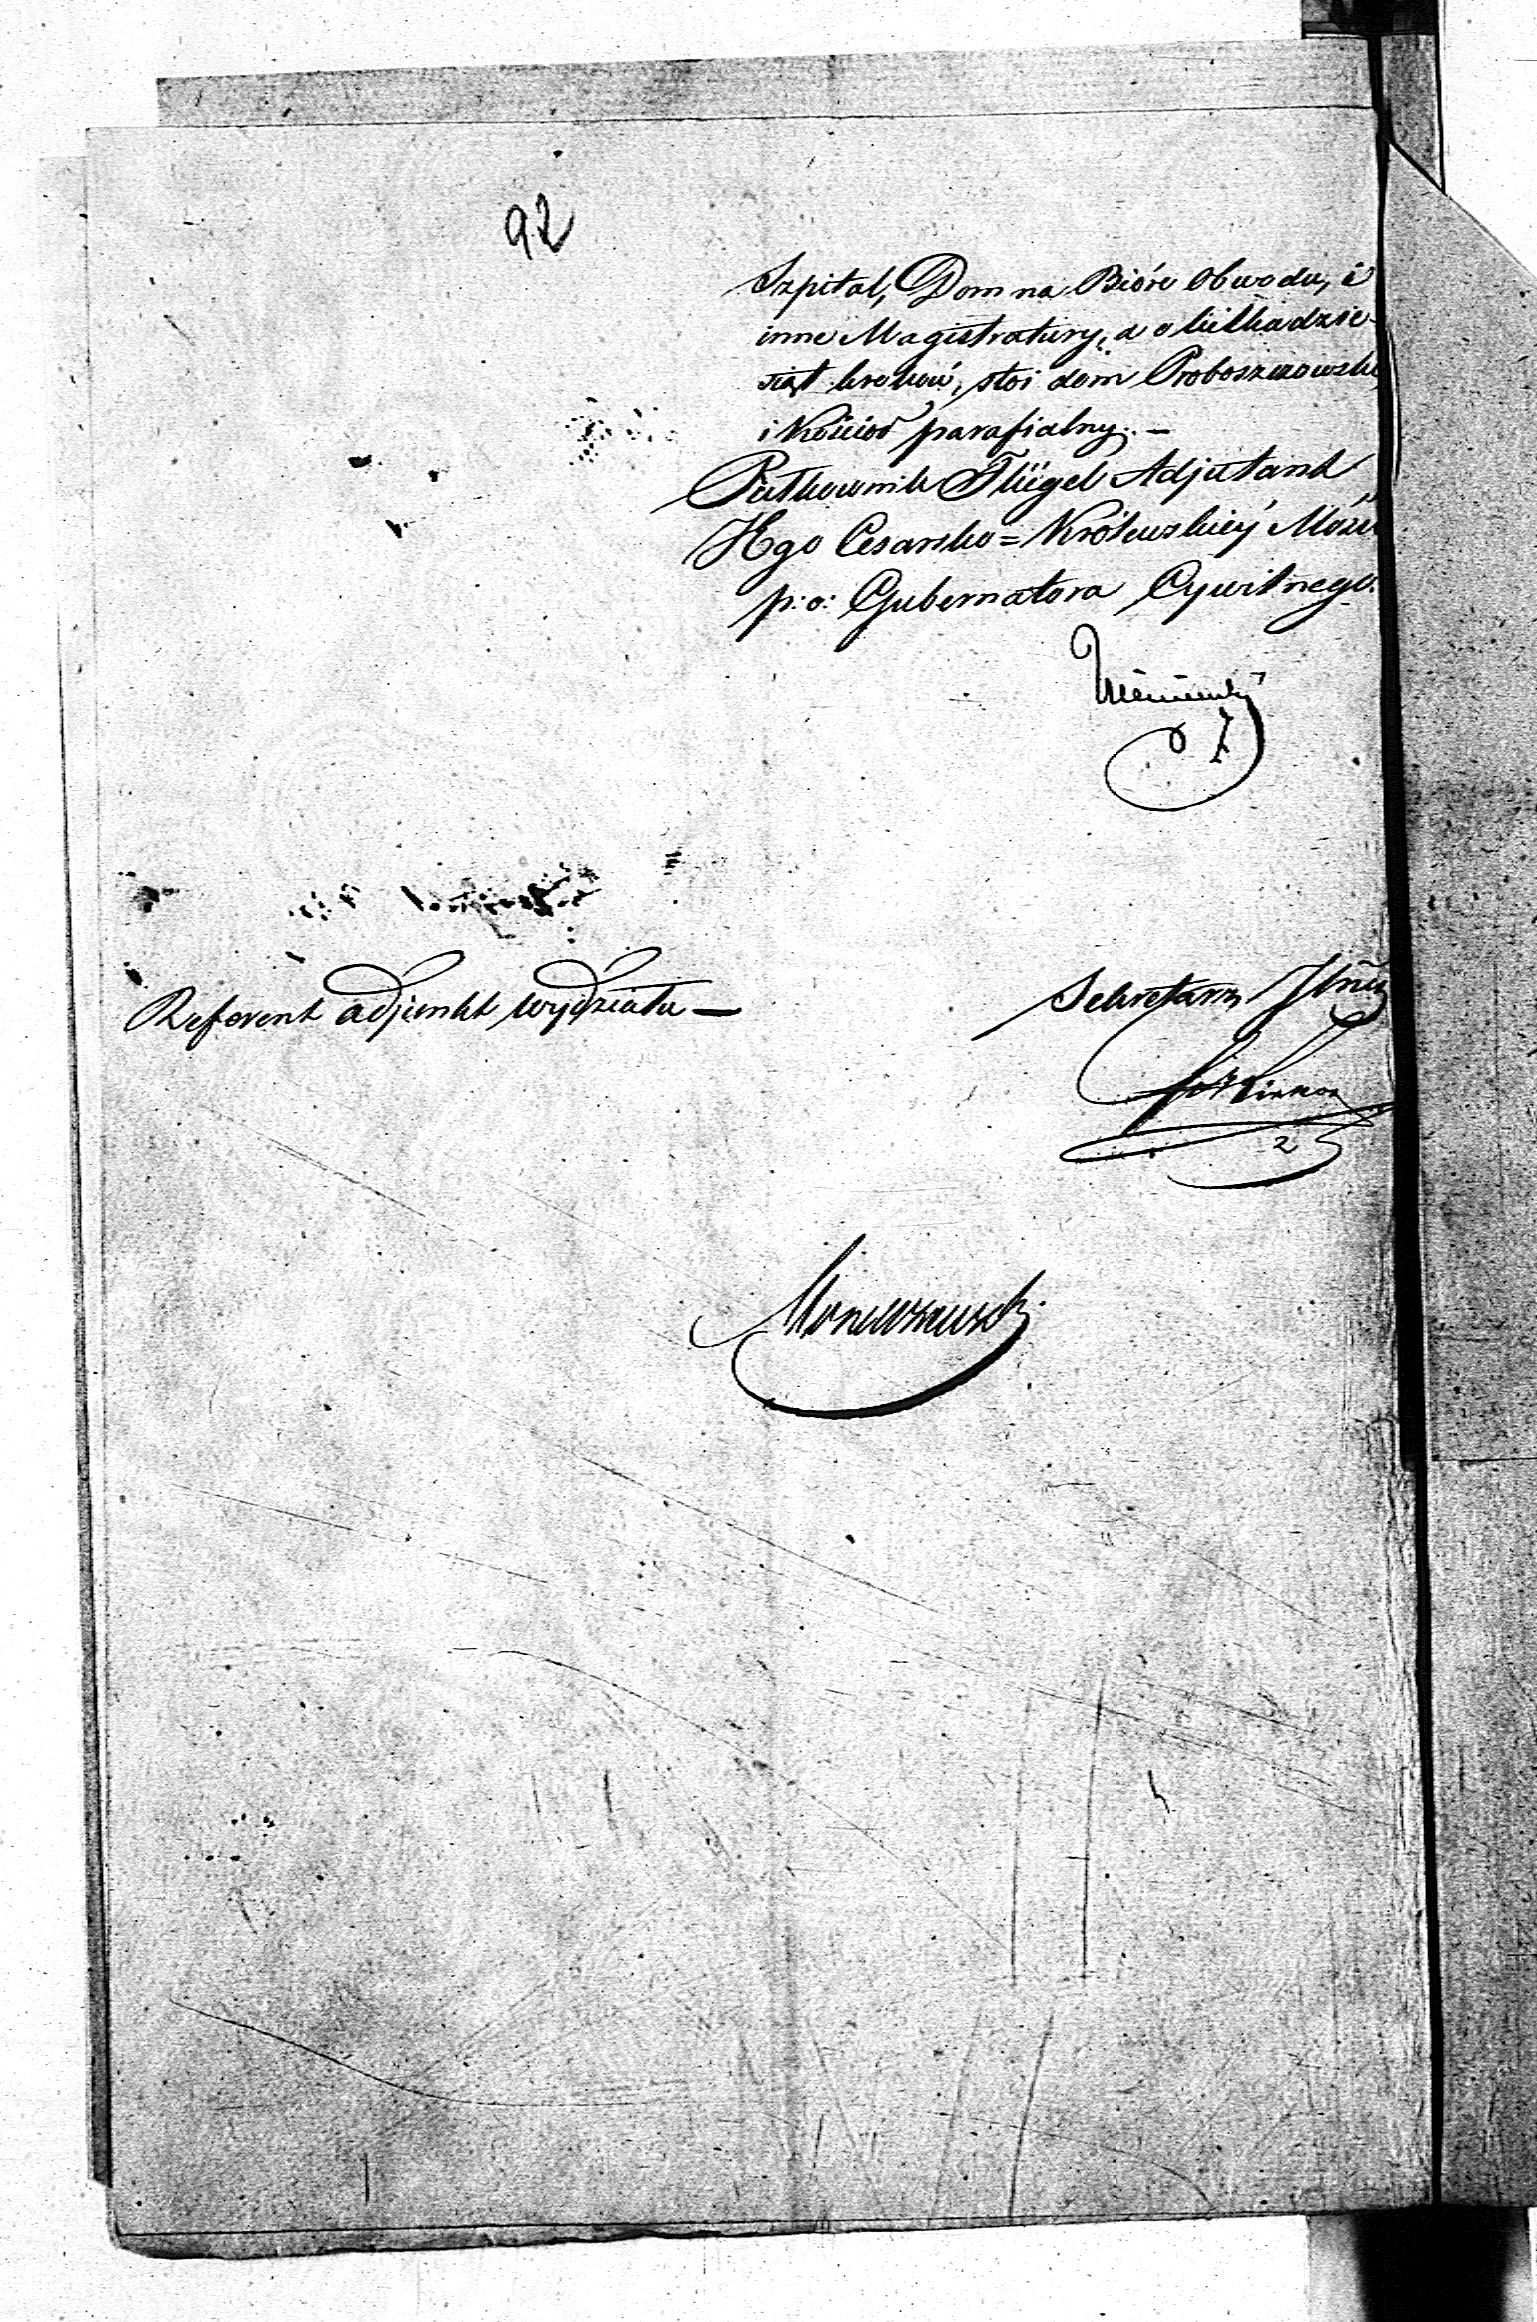 92
Szpital, Dom na Bióro Obwodu, i
inne Magistratury, a o kilkadzie-
siąt kroków, stoi dom Proboszczowski
i Kościoł parafialny. —
Pułkownik Flügel Adjutant
JEgo Cesarsko = Królewskiey Mości
p: o: Gubernatora Cywilnego.
Referent adjunkt wydziału —
Sekretarz Jlny
2